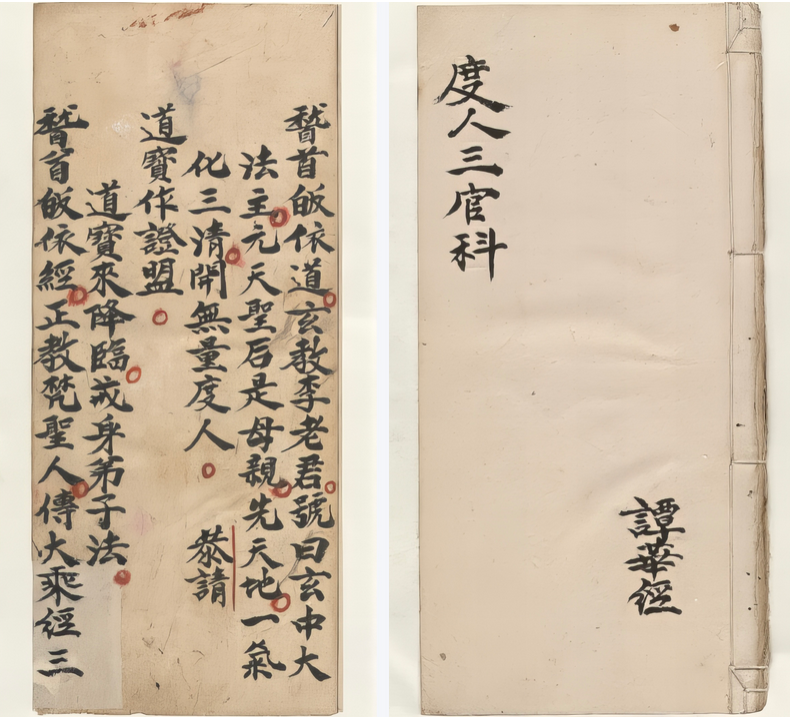 度人三官科
譚華經
稽首皈依道玄教李老君號曰玄中大
法主元天聖后是母親先天地一氣
化三清開無量度人 恭請
道寶作證盟
道寶來降臨戒身弟子法
稽首皈依經正教梵聖人傳大乘經三